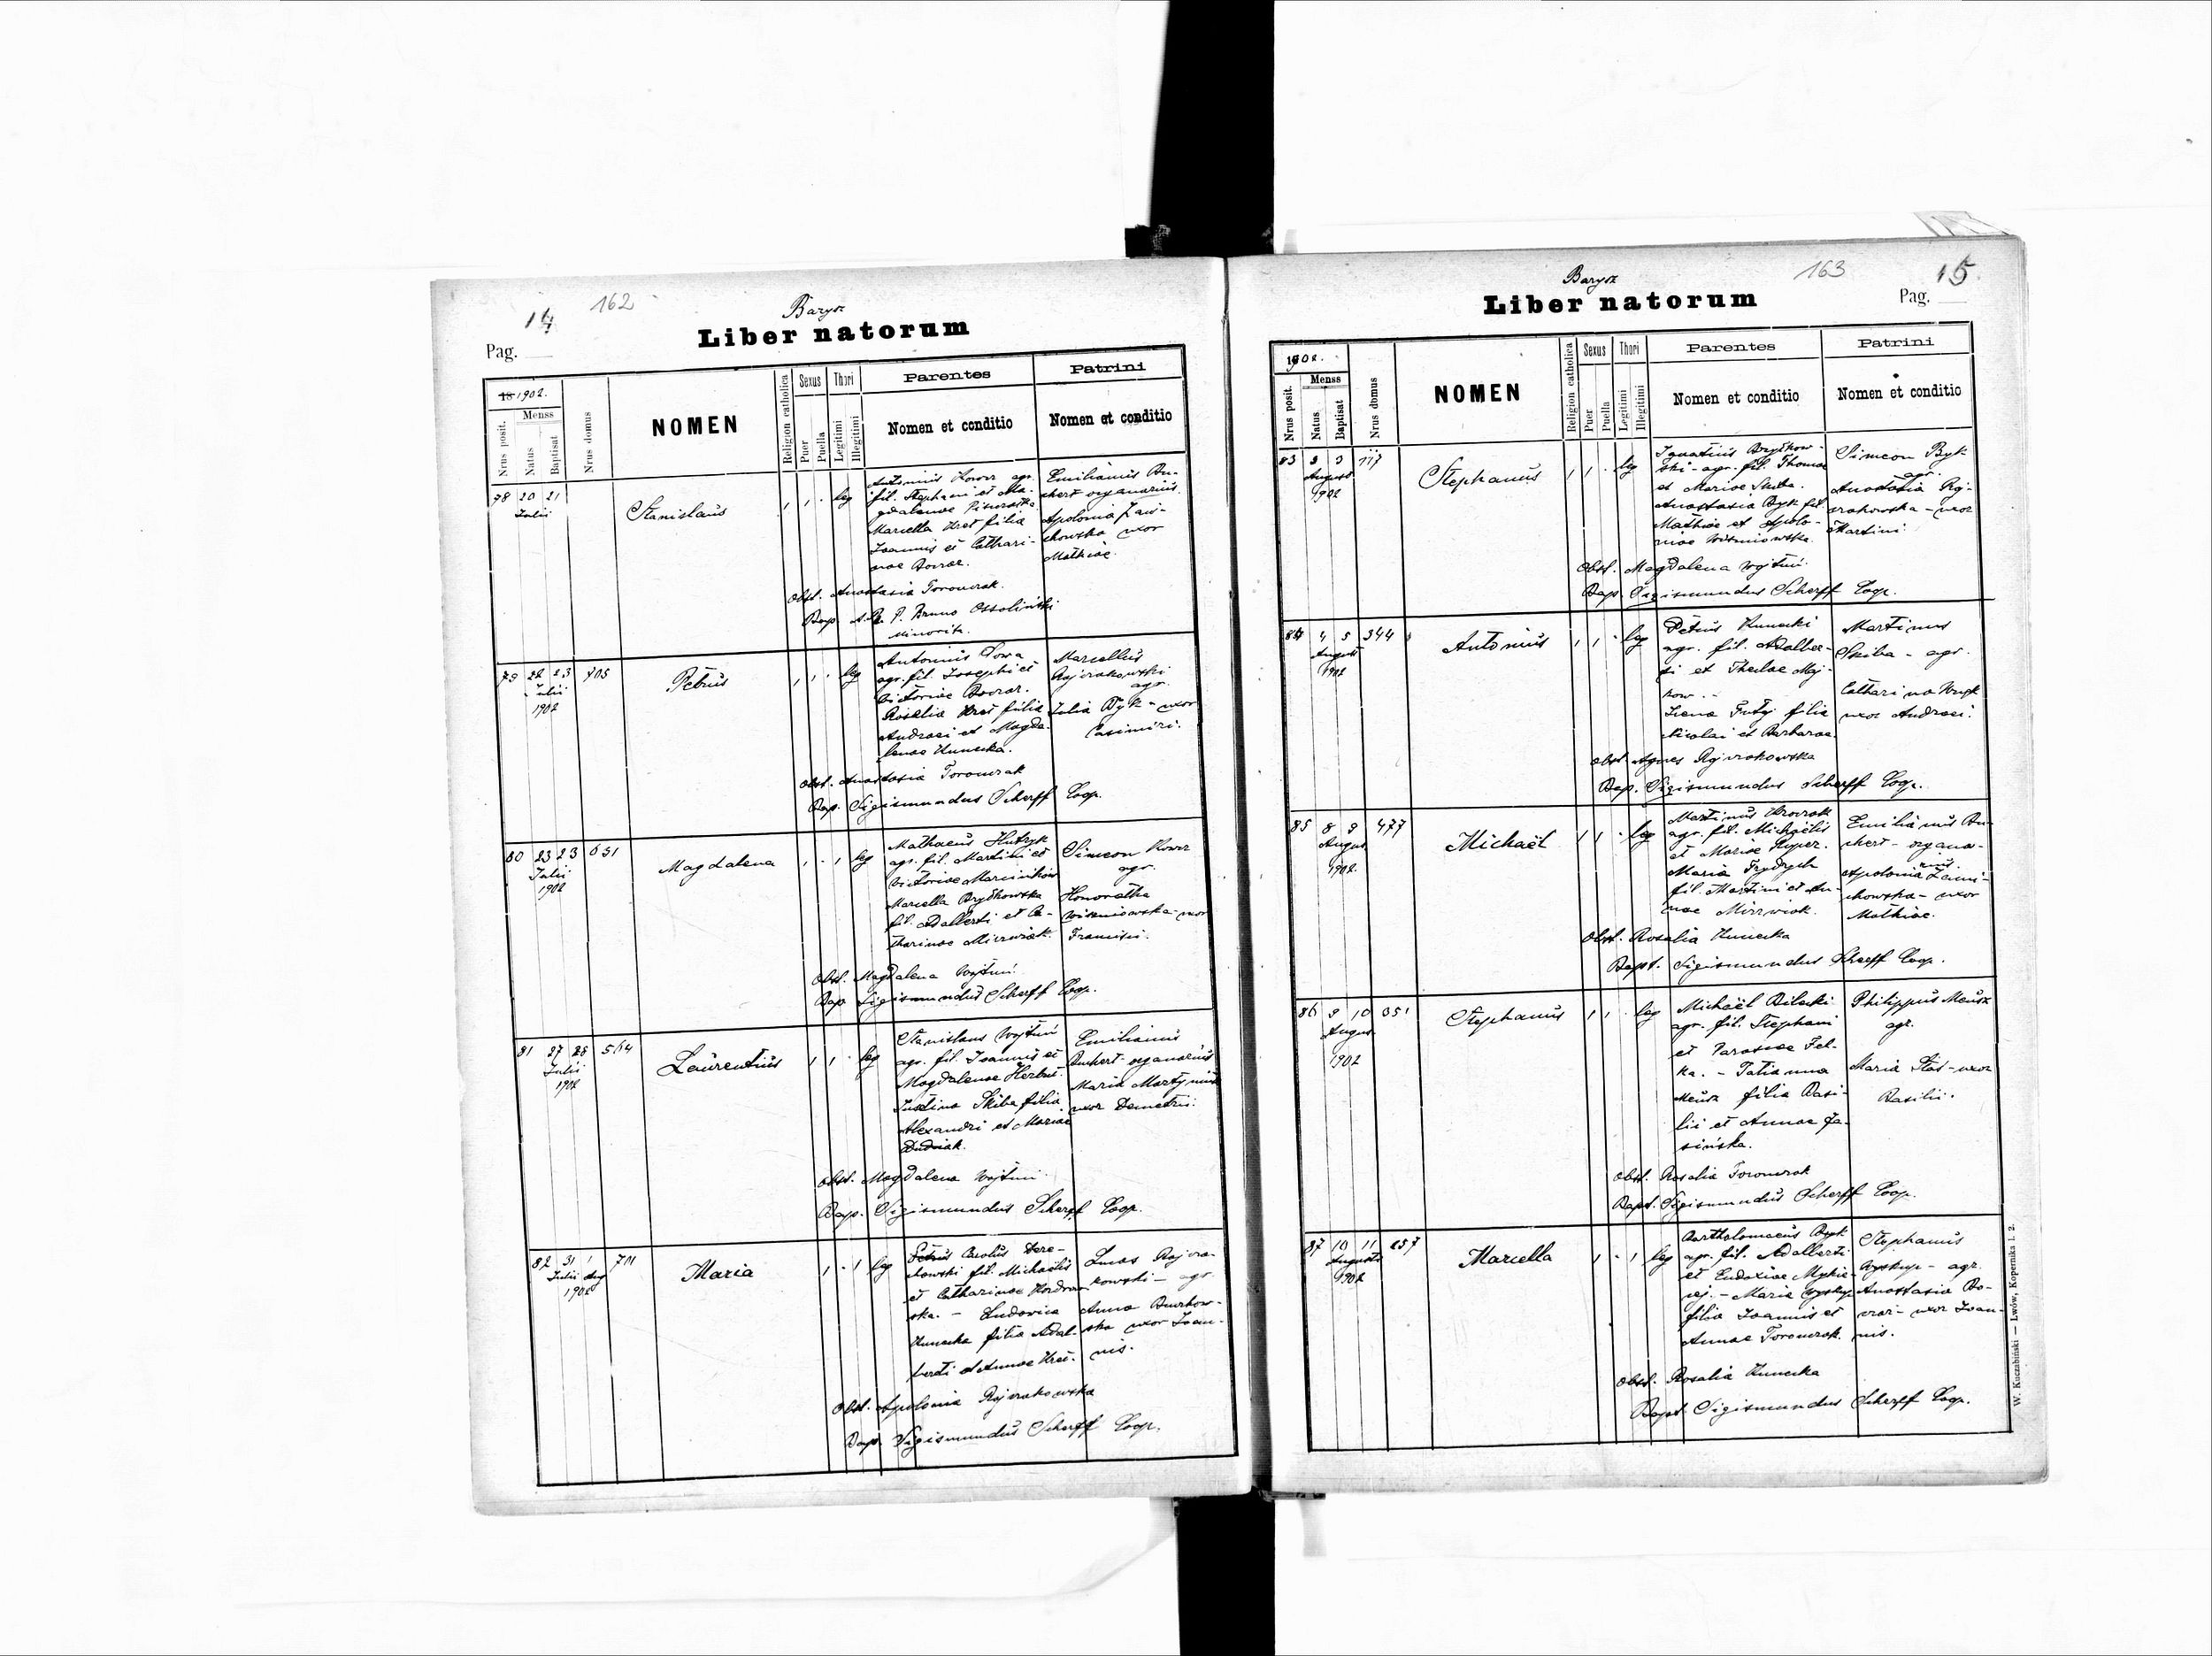 14 162 Barysz
Liber natorum
Pag.
18 1902.
Menss
Nrus posit.
Natus
Baptisat
Nrus domus
NOMEN
Religion catholica
Sexus
Puer
Puella
Thori
Legitimi
Illegitimi
Parentes
Nomen et conditio
Patrini
Nomen et conditio
78 20 21
Julii
Stanislaus
1 1 . leg
Antonius Kowcz agr.
fil. Stephani et Ma-
gdalenae
Marcella Kret filia
Joannis et Cathari-
nae
Emilianus Bu-
chert organarius.
Apolonia Zani-
chowska uxor
Mathiae.
Obst. Anastasia Toronczak.
Bap. A. R. P. Bruno Ossoliński
minorita.
79 22 23 705
Julii
1902
Petrus
1 1 . leg
Antonius Sowa
agr. fil. Josephi et
Victoriae
Rosalia Kret filia
Andreai et Magda-
lenae Kunecka.
Marcellus
Rajczakowski
agr.
Julia Byk - uxor
Casimiri.
Obst. Anastasia Toronczak
Bap. Sigismundus Scherff Coop.
80 23 23 631
Julii
1902
Magdalena
1 . 1 leg
Mathaeus Hutzyk
agr. fil. Martini et
Victoriae Marcinków
Marcella Brydkowska
fil. Adalberti et Ca-
tharinae Mizrwiak.
Simeon Kowcz
agr.
Honoratha
Wiszniowska - uxor
Francisci.
Obst. Magdalena Wojtuń
Bap Sigismundus Scherff Coop.
81 27 28 564
Julii
1902
Laurentius
1 1 . leg
Stanislaus Wojtuń
agr. fil. Joannis et
Magdalenae Herbut.
Justina Skiba filia
Alexandri et Mariae
Dudziak.
Emilianus
Buchert organarius
Maria Martyniuk
uxor Demetrii.
Obst. Magdalena Wojtuń
Bap. Sigismundus Scherff Coop.
82 31 1 701
Julii Aug
1902
Maria
1 . 1 leg
Petrus Carolus Dere-
chowski fil. Michaëlis
et Catharinae
ska. - Ludovica
Kunecka filia Adal-
berti et Annae Kret.
Lucas Rajcza-
kowski - agr
Anna Burzkow-
ska uxor Joan-
nis.
Obst. Apolonia Rajczakowska
Bap. Sigismundus Scherff Coop.
Barysz 163 15
Liber natorum
Pag.
1902.
Menss
Nrus posit.
Natus
Baptisat
Nrus domus
NOMEN
Religion catholica
Sexus
Puer
Puella
Thori
Legitimi
Illegitimi
Parentes
Nomen et conditio
Patrini
Nomen et conditio
83 3 3 117
August
1902
Stephanus
1 1 . leg
Ignatius Brydkow-
ski - agr. fil. Thomae
et Mariae Skiba.
Anastasia Byk fil.
Mathiae et Apolo-
niae Wiszniowska.
Simeon Byk
agr.
Anastasia Raj-
czakowska - uxor
Martini.
Obst. Magdalena Wojtuń.
Bap. Sigismundus Scherff Coop.
84 4 5 344
August
1902
Antonius
1 1 . leg
Petrus Kunecki
agr. fil. Adalber-
ti et Theclae Maj-
kow. -
Irena Futyj filia
Nicolai et Barbarae.
Martinus
Skiba - agr.
Catharina
uxor Andreae.
Obst. Agnes Rajczakowska
Bap. Sigismundus Scherff Coop.
85 8 9 477
August
1902
Michaël
1 1 . leg
Martinus
agr. fil. Michaëlis
et Mariae
Maria Frydrych
fil. Martini et An-
nae Mizrwiak.
Emilianus Bu-
chert - organa-
rius
Apolonia Zani-
chowska - uxor
Mathiae.
Obst. Rosalia Kunecka
Bapt. Sigismundus Scherff Coop.
86 9 10 651
August
1902
Stephanus
1 1 . leg
Michaël Bilecki
agr. fil. Stephani
et Parasceae Fel-
ka. - Tatianna
Meusz filia Basi-
lii et Annae Ja-
sińska.
Philippus Meusz
agr.
Maria Stos - uxor
Basilii.
Obst. Rosalia Toronczak
Bapt. Sigismundus Scherff Coop.
87 10 11 257
Augusti
1902
Marcella
1 . 1 leg
Bartholomaeus Byk
agr. fil. Adalberti
et Eudoxiae Mykie-
tej. - Maria Wyskup
filia Joannis et
Annae Toronczak.
Stephanus
Wyskup - agr.
Anastasia
uxor Joan-
nis.
Obst. Rosalia Kunecka
Bapt. Sigismundus Scherff Coop.
W. Koczabiński — Lwów, Kopernika l. 2.